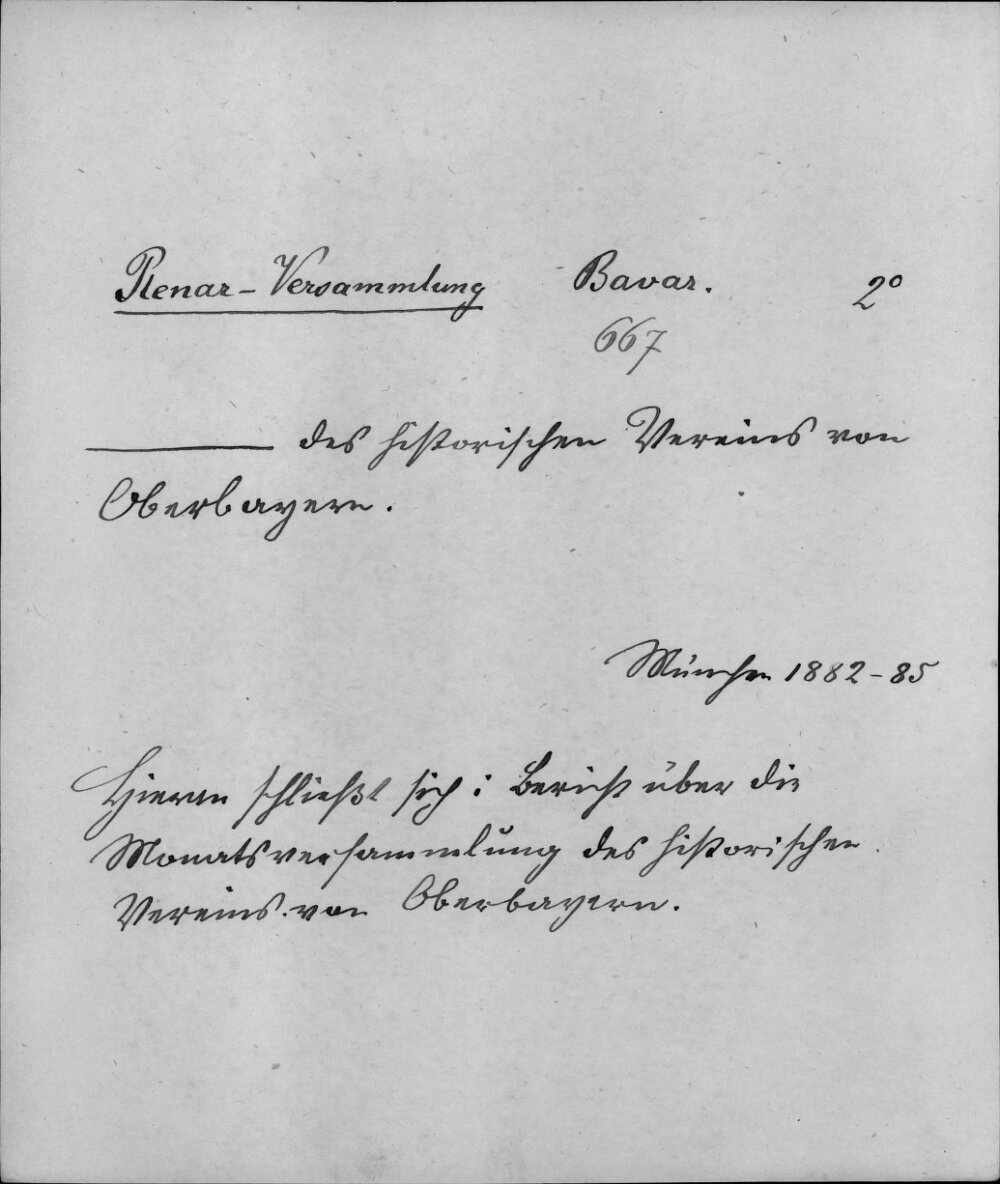 Plenar-Versammlung Bavar. 2°
667
——— des historischen Vereins von
Oberbayern.
München 1882-85
Hieran schließt sich: Bericht über die
Monatsversammlung des historischen
Vereins von Oberbayern.